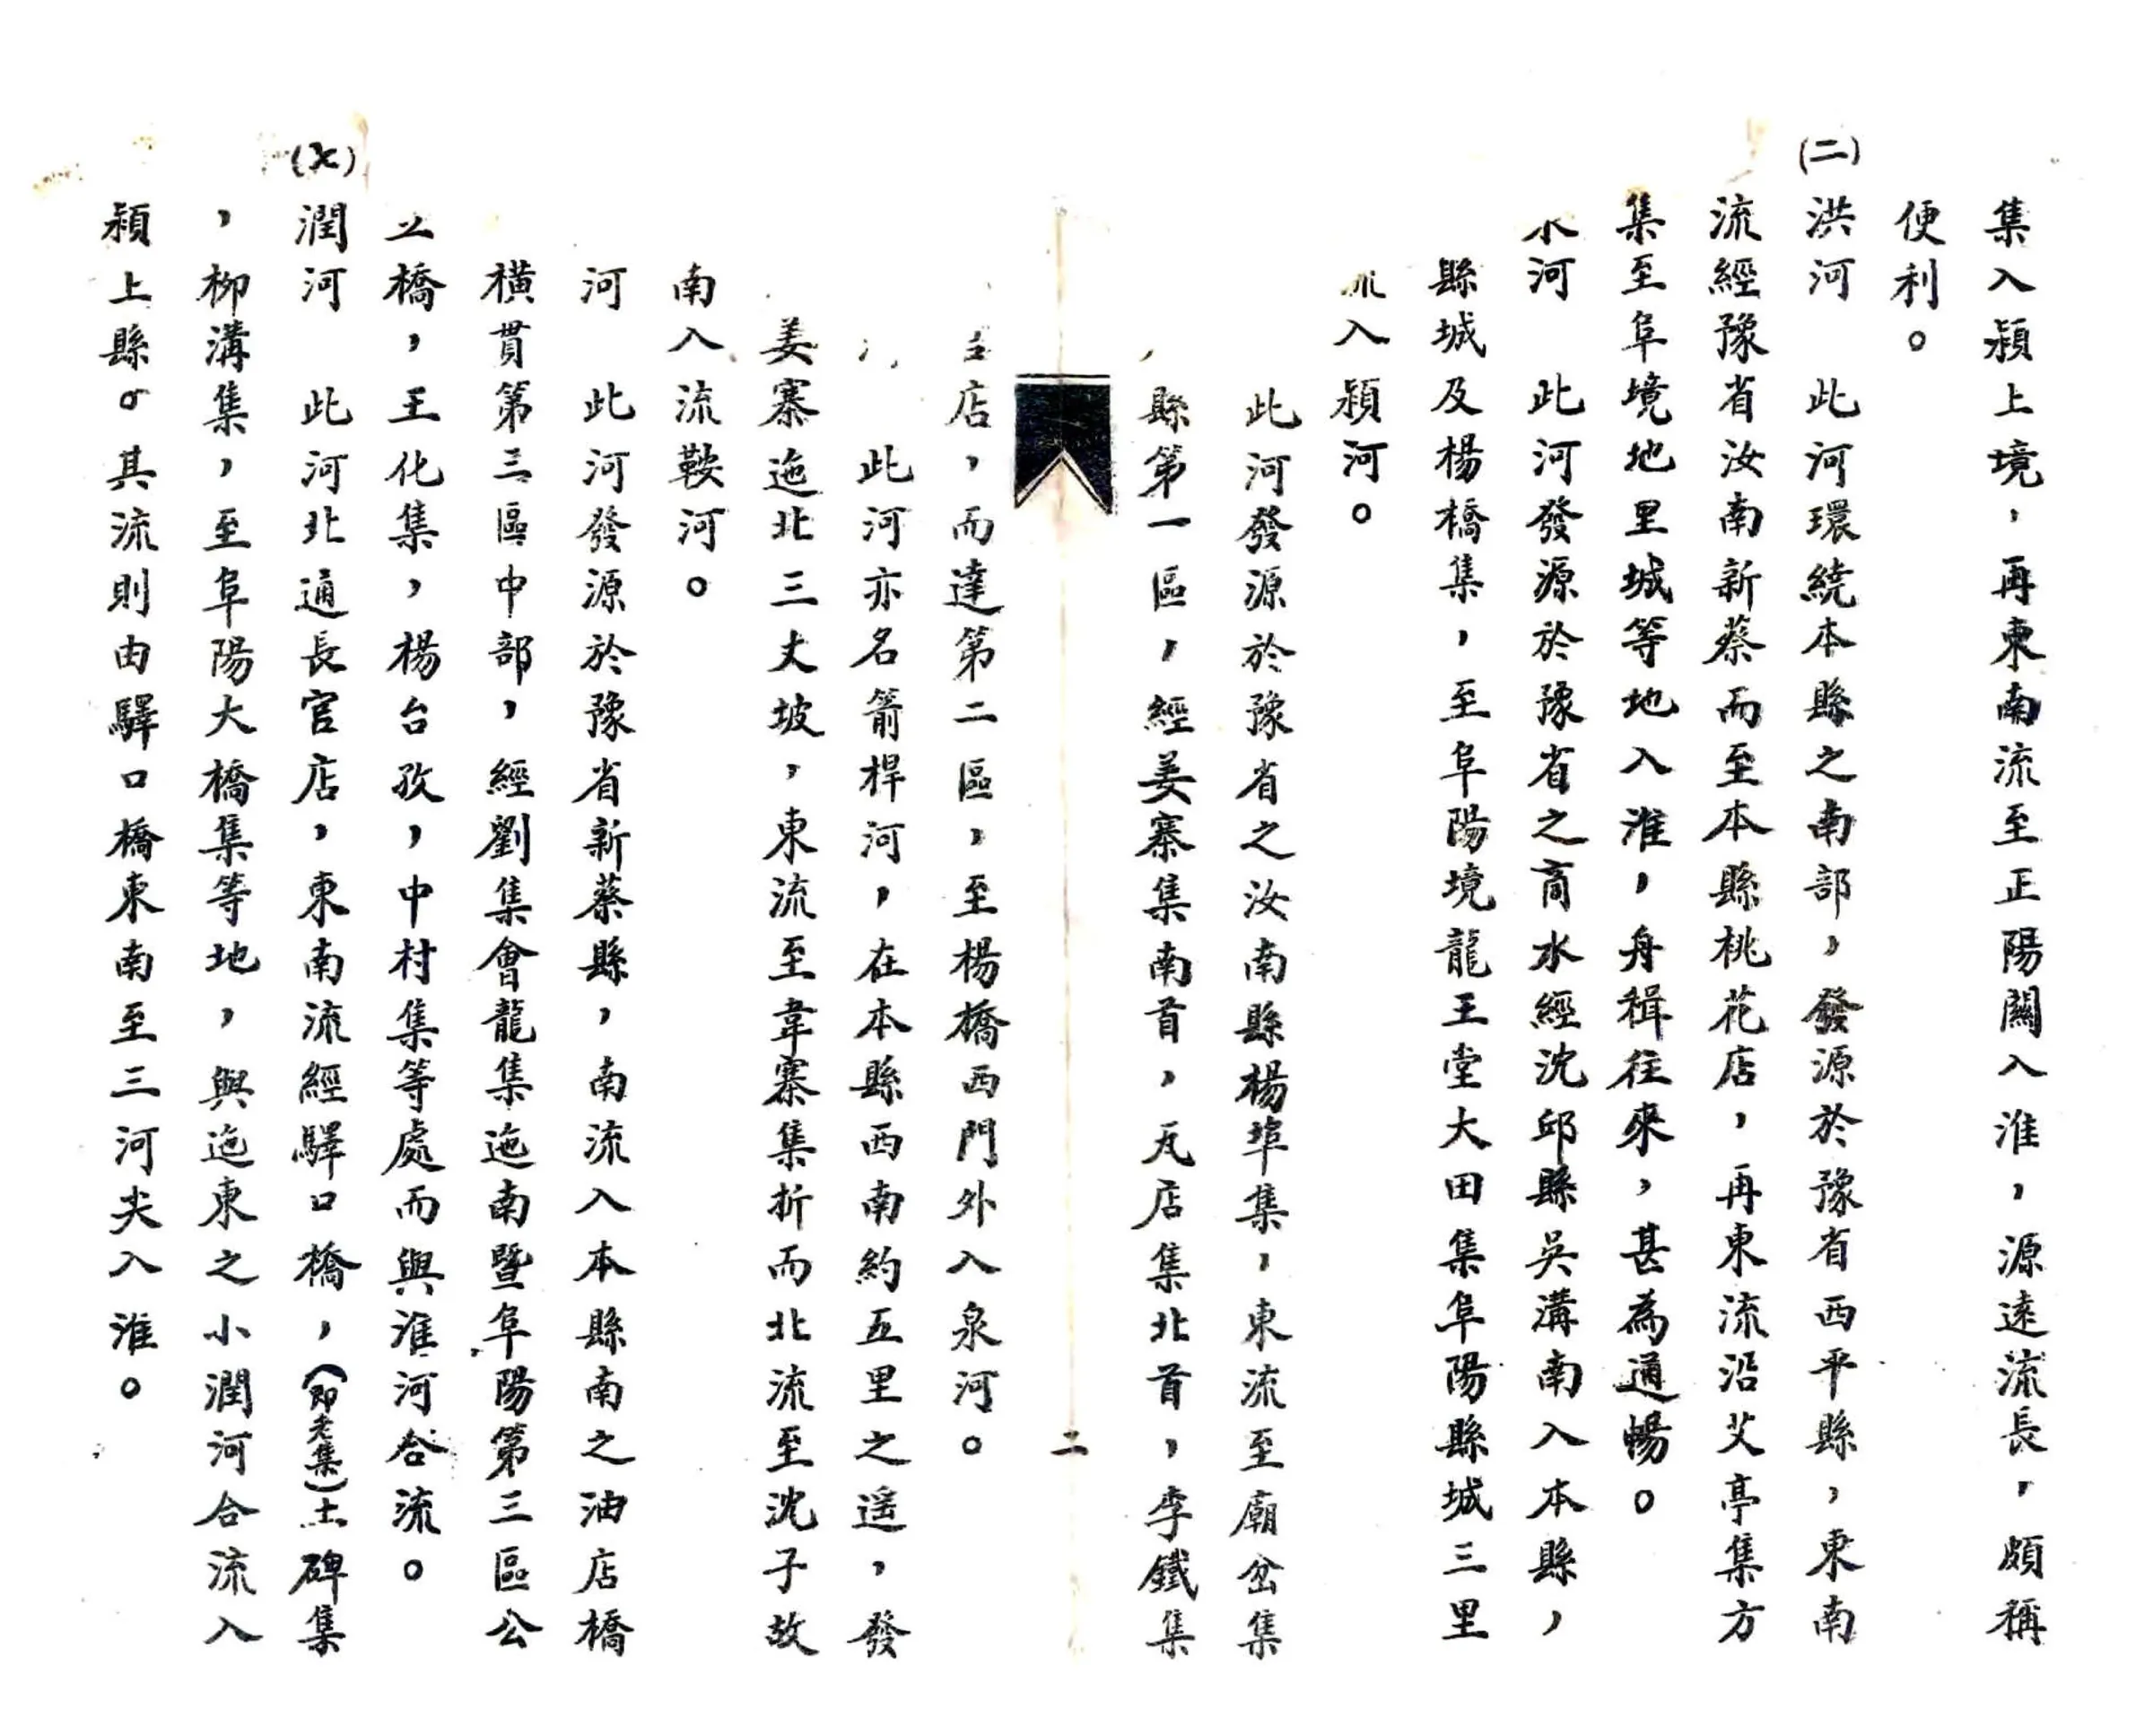 集入潁上境，再東南流至正陽關入淮，源遠流長，頗稱
便利。
(二)洪河　此河環繞本縣之南部，發源於豫省西平縣，東南
流經豫省汝南新蔡而至本縣桃花店，再東流沿艾亭集方
集至阜境地里城等地入淮，舟楫往來，甚為通暢。
河　此河發源於豫省之商水經沈邱縣吳溝南入本縣，
縣城及楊橋集，至阜陽境龍王堂大田集阜陽縣城三里
入潁河。
此河發源於豫省之汝南縣楊埠集，東流至廟岔集
縣第一區，經姜寨集南首，瓦店集北首，李鐵集
二
店，而達第二區，至楊橋西門外入泉河。
此河亦名箭桿河，在本縣西南約五里之遥，發
姜寨迤北三丈坡，東流至韋寨集折而北流至沈子故
南入流鞍河。
河　此河發源於豫省新蔡縣，南流入本縣南之油店橋
橫貫第三區中部，經劉集會龍集迤南暨阜陽第三區公
橋，王化集，楊台孜，中村集等處而與淮河合流。
(七)潤河　此河北通長官店，東南流經驛口橋，(即老集)土碑集
，柳溝集，至阜陽大橋集等地，與迤東之小潤河合流入
潁上縣。其流則由驛口橋東南至三河尖入淮。